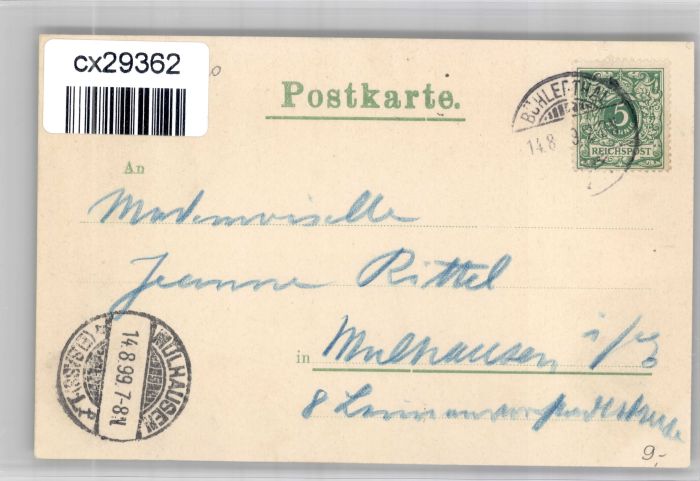 cx29362
Postkarte.
BÜHLERTHAL
14.8
5
REICHSPOST
An
Mademoiselle
Jeanne Rittel
in Mulhausen i/
8
MÜLHAUSEN
14.8.99.7-8N
(ELSASS)
9.-